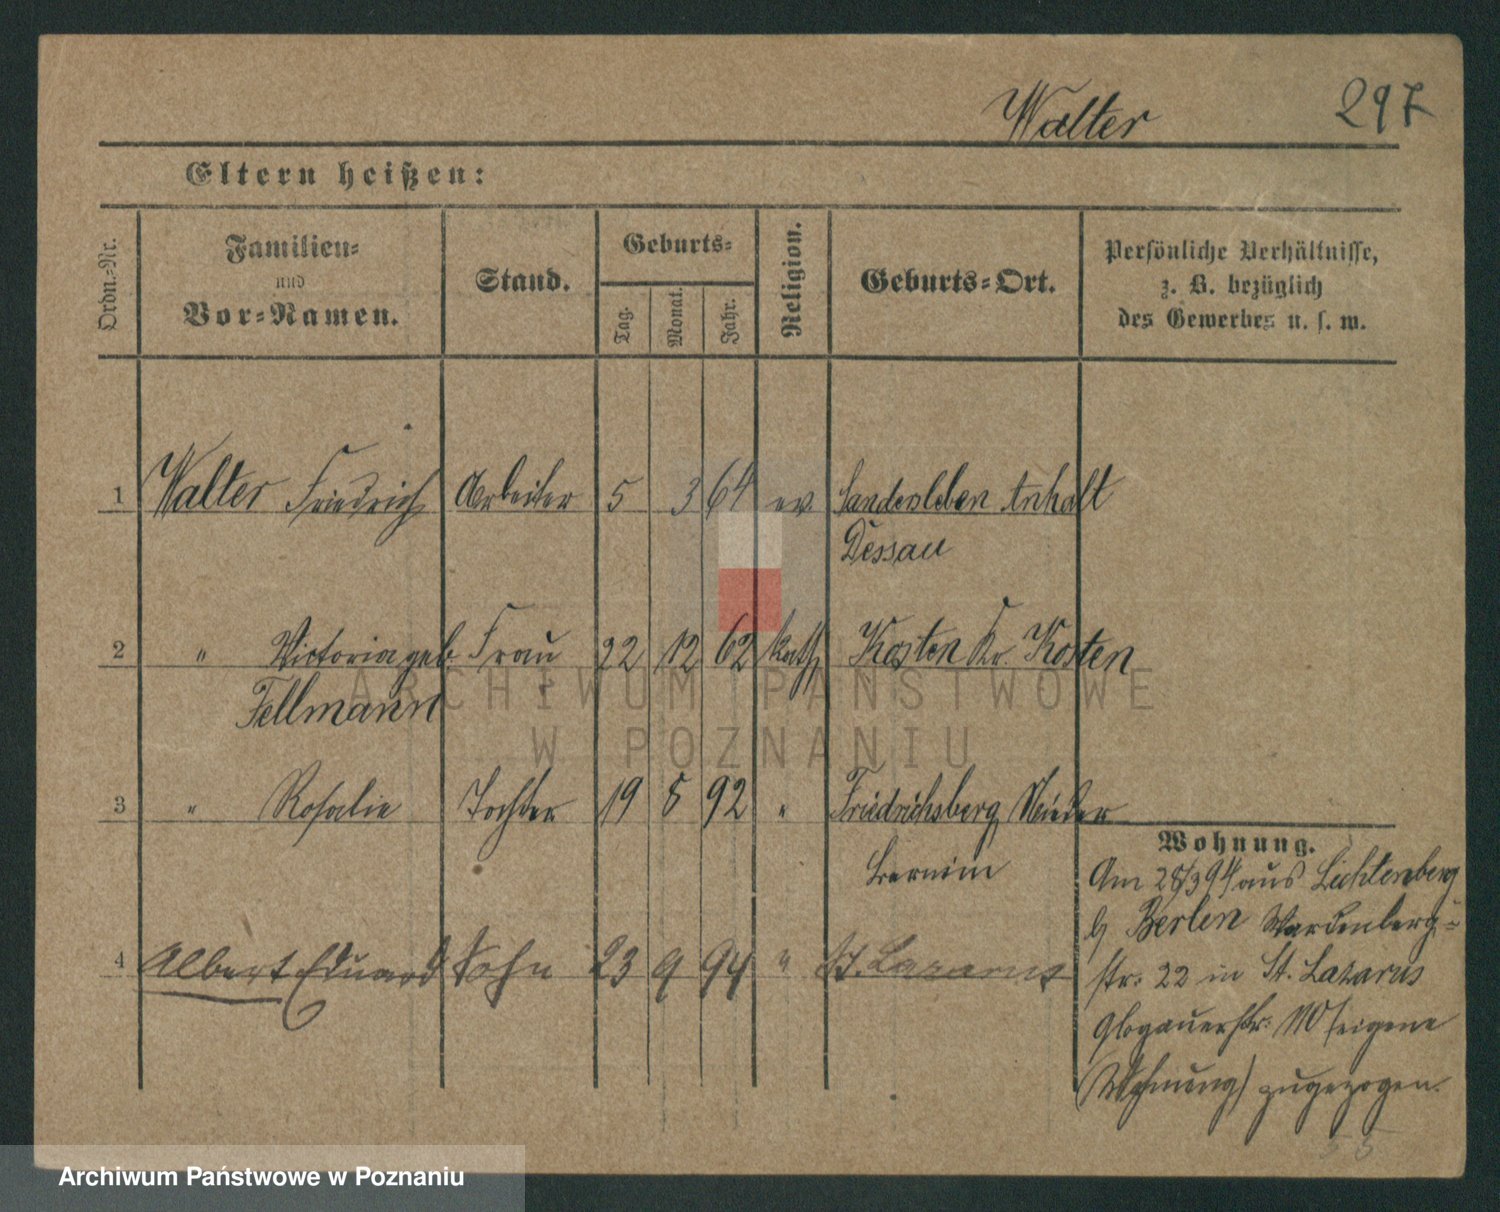 Walter
297
Eltern heißen:
Ordn.-Nr.
Familien-
und
Vor-Namen.
Stand.
Geburts-
Tag.
Monat.
Jahr.
Religion.
Geburts-Ort.
Persönliche Verhältnisse,
z. B. bezüglich
des Gewerbes u. s. w.
1 Walter Friedrich Arbeiter 5 3 64 ev. Sandersleben Anhalt
Dessau
2 " Victoria geb. Frau 22 12 62 kath. Kosten Kr. Kosten
Fellmann
3 " Rosalie Tochter 19 5 92 " Friedrichsberg Nieder
Barnim
4 Albert Eduard Sohn 23 9 94 " St. Lazarus
Wohnung.
Am 28/3 94 aus Lichtenberg
b/ Berlin Wardenberg-
str. 22 in St. Lazarus
Glogauerstr. (eigene
Wohnung) zugezogen.
55
ARCHIWUM PAŃSTWOWE
W POZNANIU
Archiwum Państwowe w Poznaniu